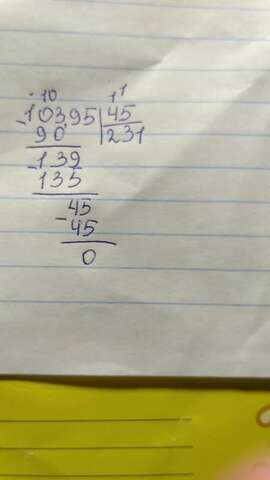 . 10 11
- 103,95 | 45
90 231
- 139
135
45
- 45
0